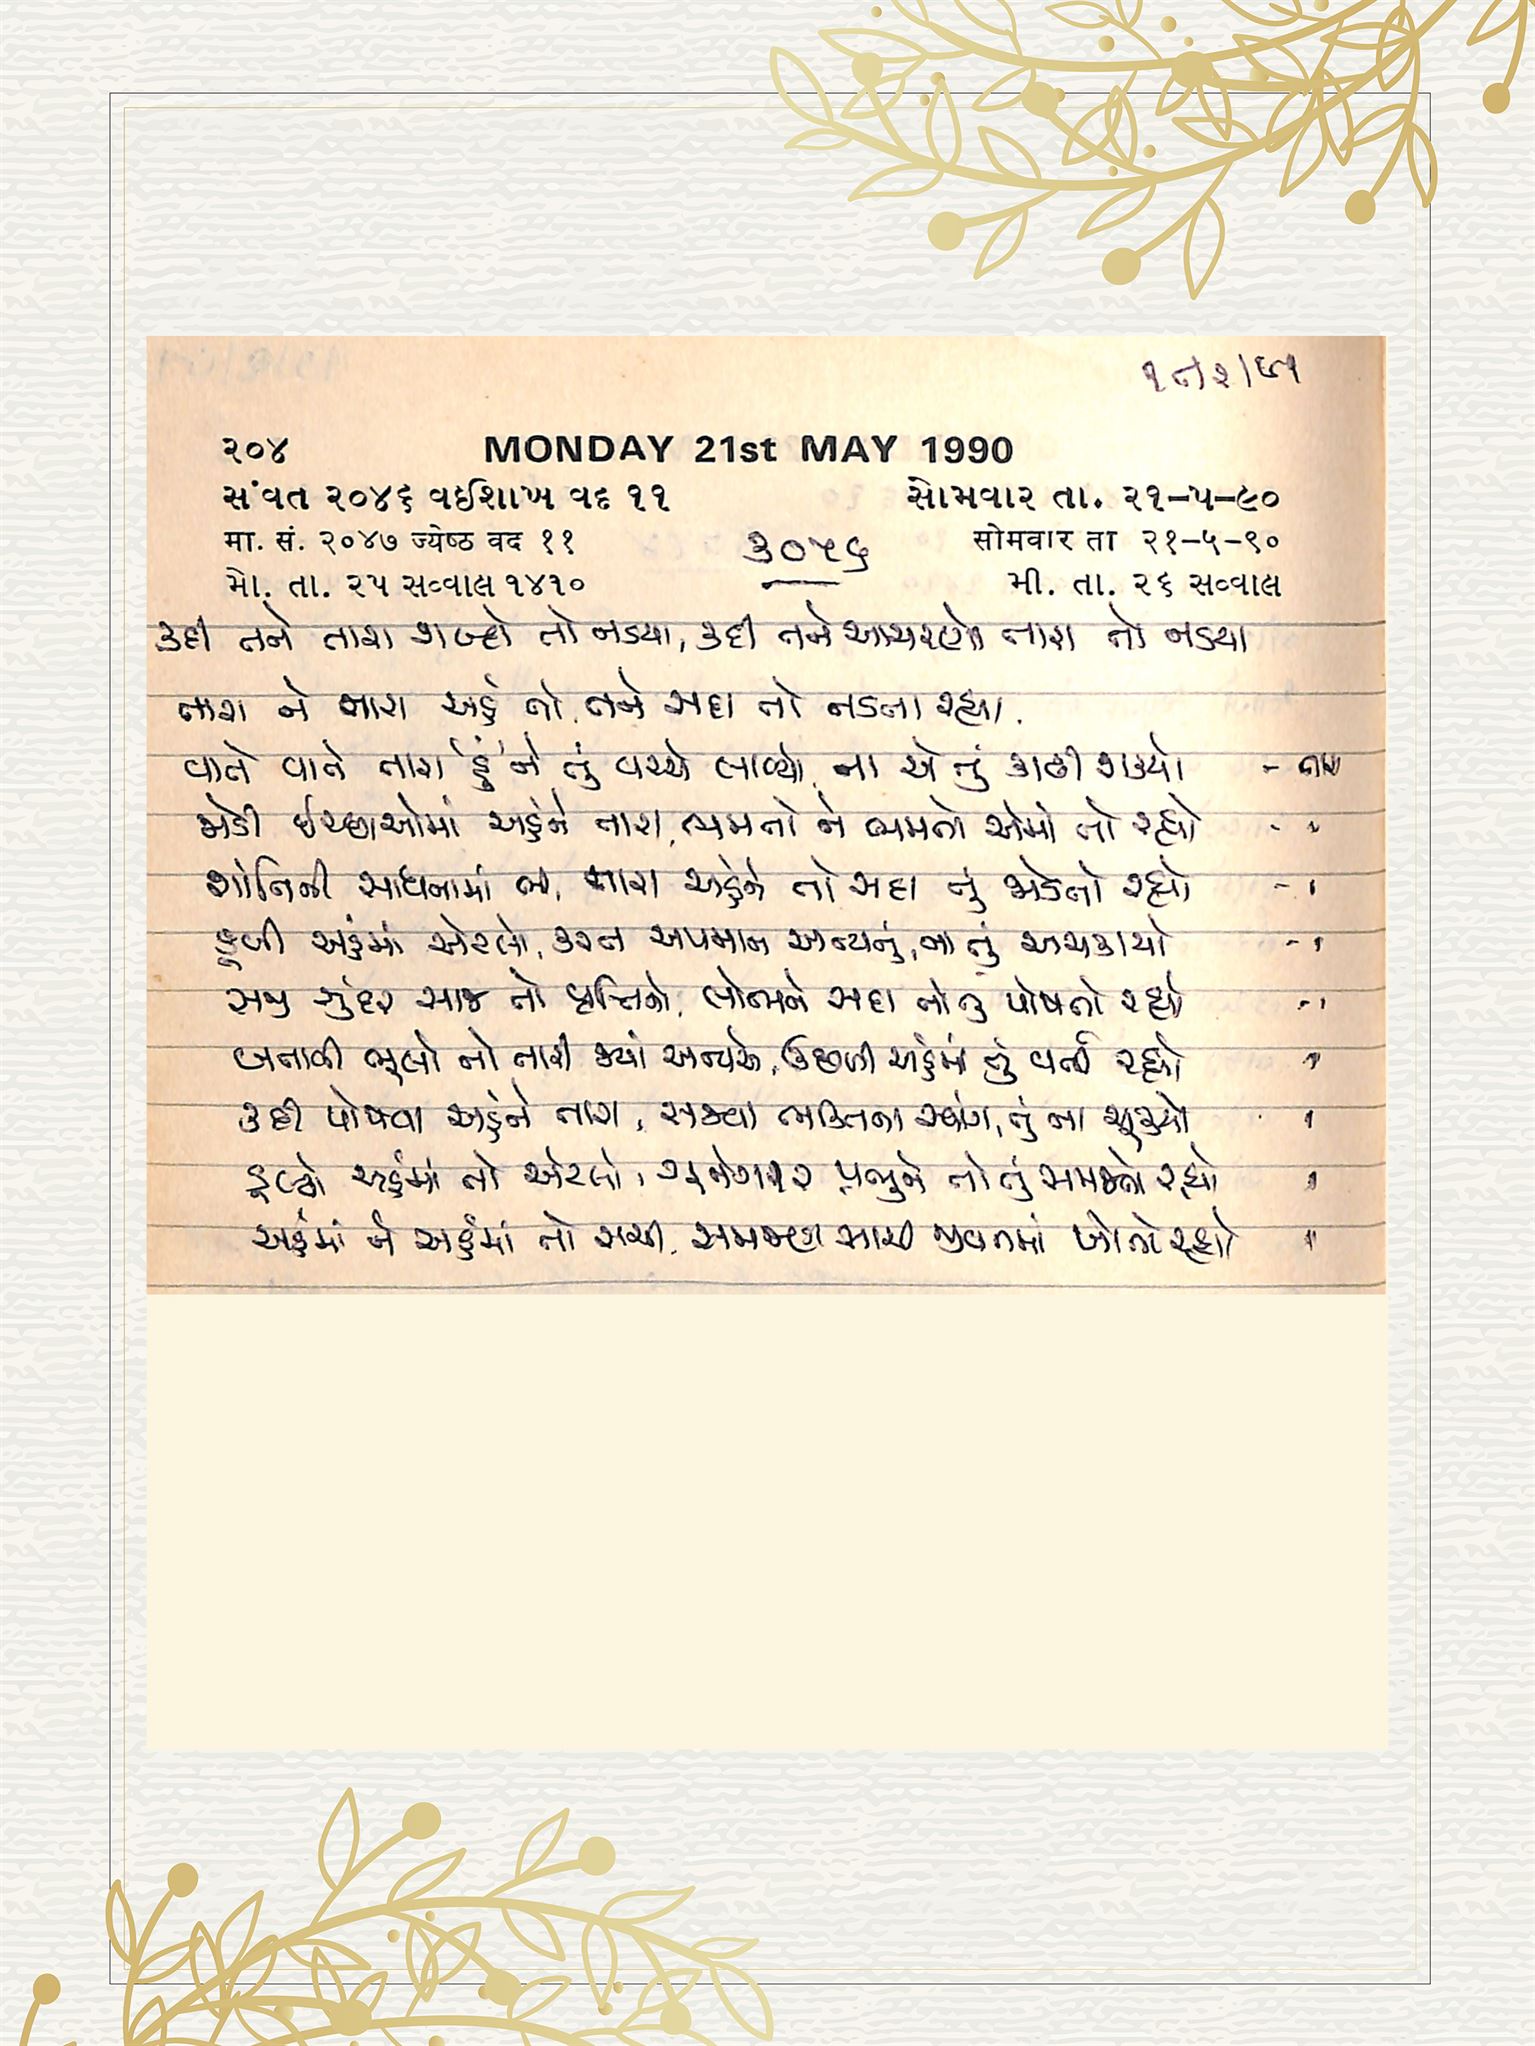 ૨૦૪ MONDAY 21st MAY 1990
સંવત ૨૦૪૬ વઈશાખ વદ ૧૧ સોમવાર તા. ૨૧–૫–૯૦
मा. सं. २०४७ ज्येष्ठ वद ११ ૩૦૫૬ सोमवार ता २१–५–९०
મો. તા. ૨૫ સવ્વાલ ૧૪૧૦ મી. તા. ૨૬ સવ્વાલ
કદી તને તારા શબ્દો તો નડયા, કદી તને આચરણો તારા તો નડયા
તારા ને તારા અહં તો, તને સદા તો નડતા રહ્યા.
વાતે વાતે તારા 'હું' ને તું વચ્ચે લાવ્યો, ના એ તું કાઢી શક્યો - તારા
જોડી ઈચ્છાઓમાં અહંને તારા, ભમતો ને ભમતો એમાં તો રહ્યો - "
શાંતિની સાધનામાં ભી, તારા અહંને તો સદા તું જોડતો રહ્યો - "
ડૂબી અહંમાં એટલો, કરત અપમાન અન્યનું, ના તું અચકાયો - "
સજી સુંદર સાજ તો વૃત્તિનો, લોભને સદા તો તું પોષતો રહ્યો - "
બનાવી ભૂલો તો તારી ક્યાં અન્યને, ઉછળી અહંમાં તું વર્તી રહ્યો "
કદી પોષવા અહંને તારા, સજ્યા ભક્તિના સ્વાંગ, તું ના ચૂક્યો "
ડૂબ્યો અહંમાં તો એટલો, ગુનેગાર પ્રભુને તો તું સમજતો રહ્યો "
અહંમાં ને અહંમાં તો રાચી, સમજણ સાચી જીવનમાં ખોતો રહ્યો "